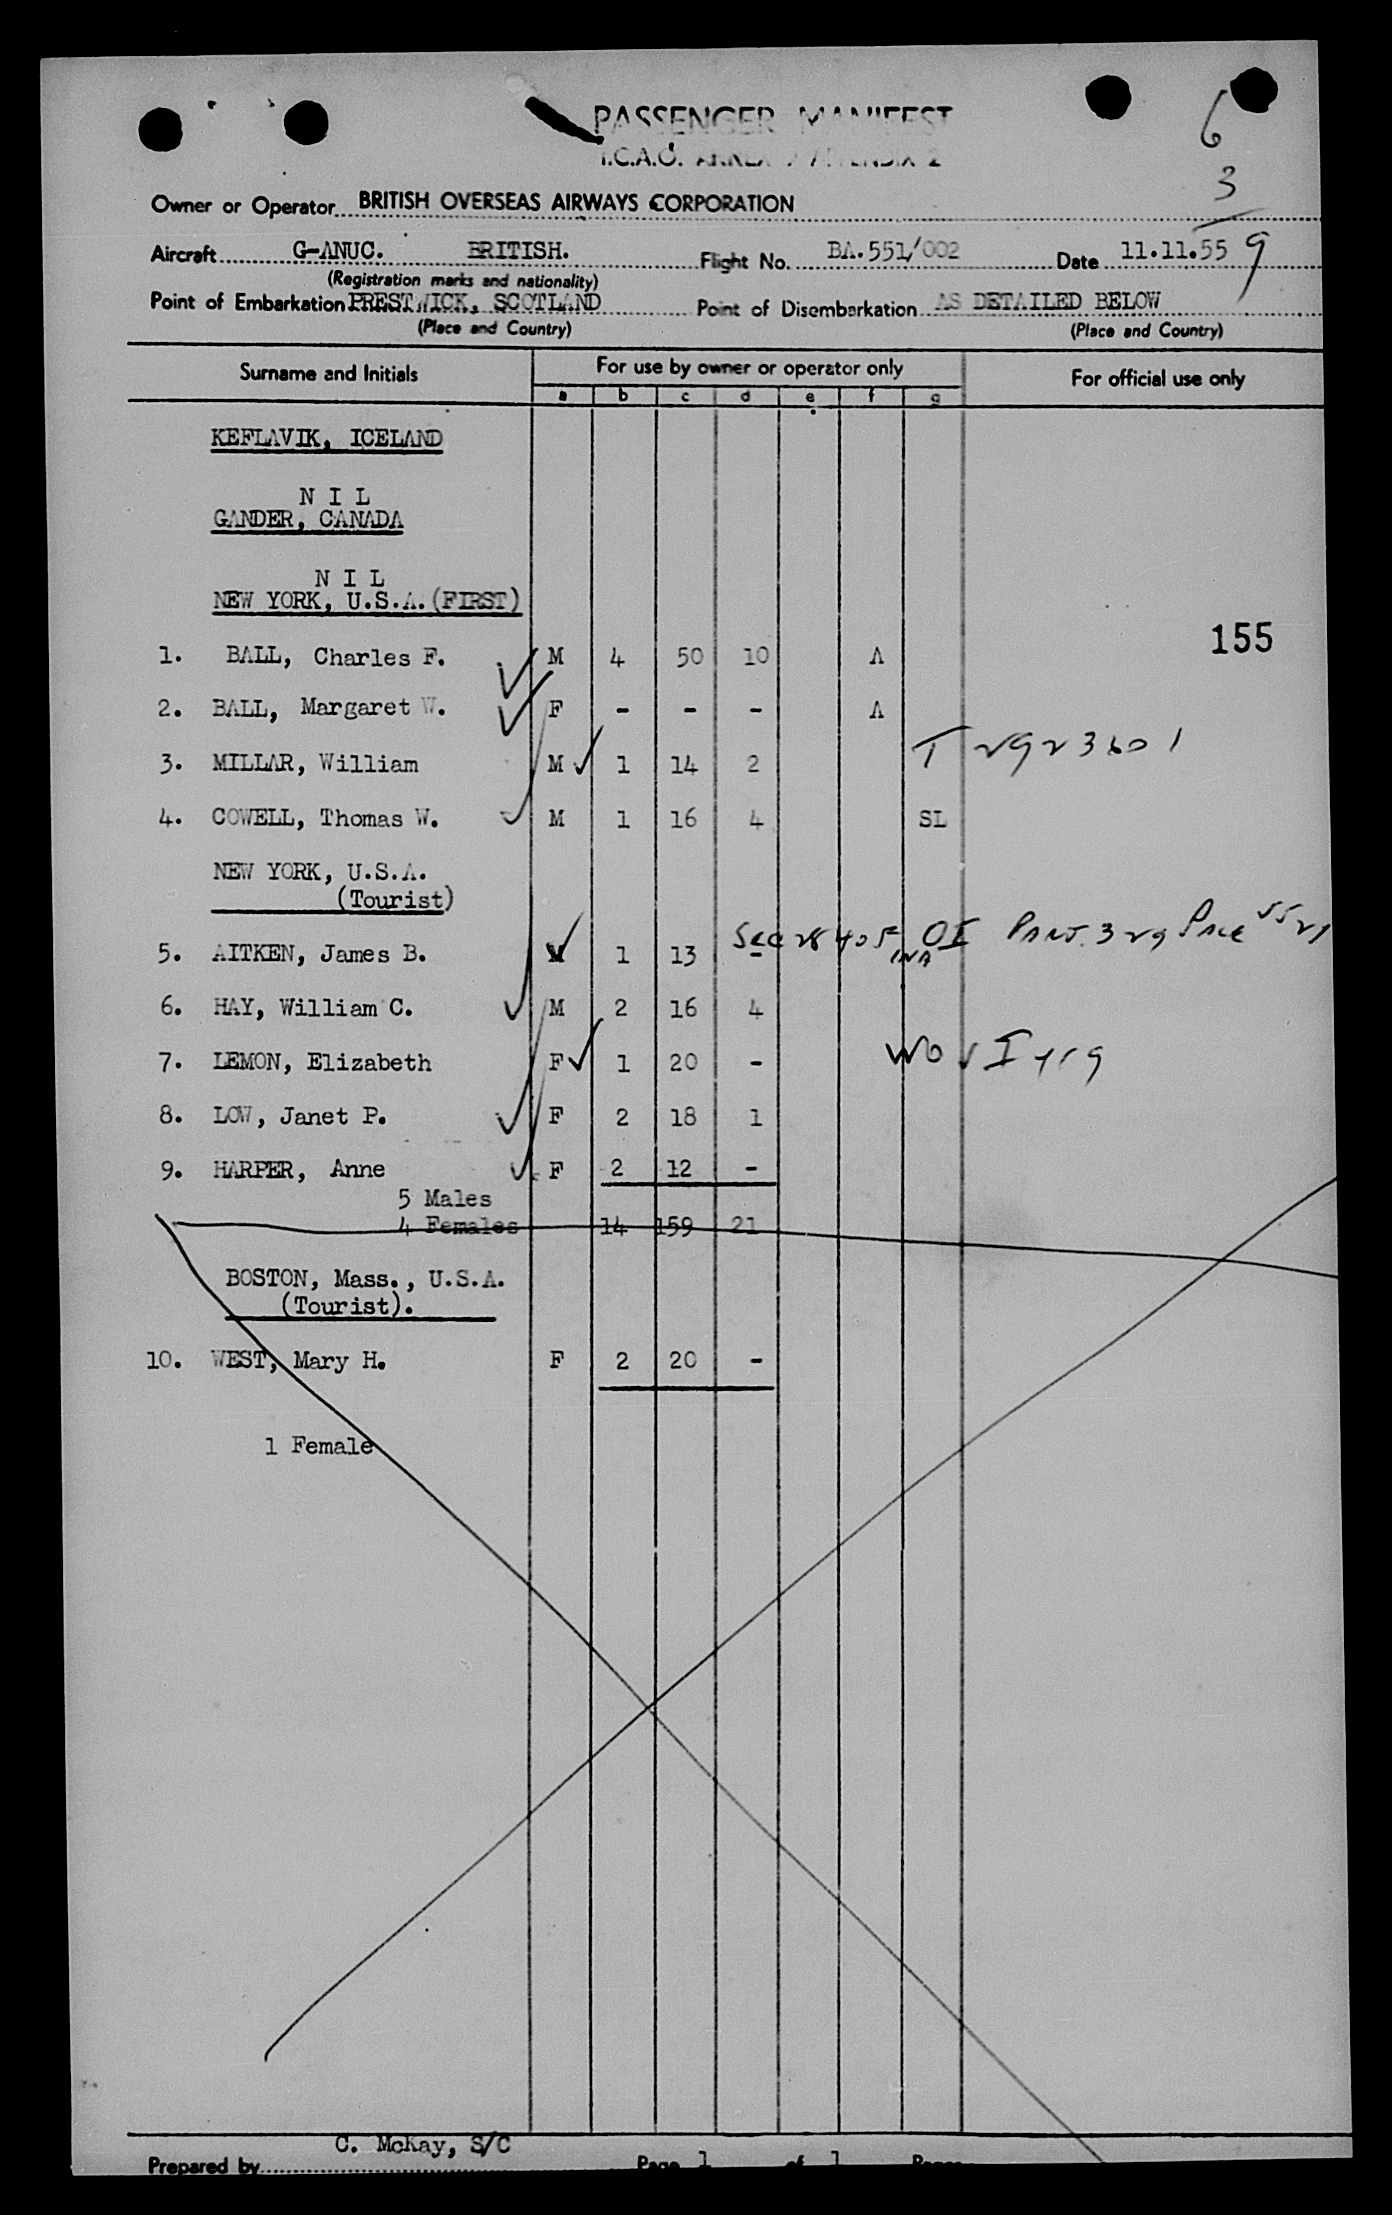 PASSENGER MANIFEST
I.C.A.O. ANNEX 9 APPENDIX 2
6
3
9
Owner or Operator BRITISH OVERSEAS AIRWAYS CORPORATION
Aircraft G-ANUC. BRITISH. Flight No. BA.551/002 Date 11.11.55
(Registration marks and nationality)
Point of Embarkation PRESTWICK, SCOTLAND Point of Disembarkation AS DETAILED BELOW
(Place and Country) (Place and Country)
Surname and Initials For use by owner or operator only For official use only
a b c d e f g
KEFLAVIK, ICELAND
N I L
GANDER, CANADA
N I L
NEW YORK, U.S.A.(FIRST)
155
1. BALL, Charles F. M 4 50 10 A
2. BALL, Margaret W. F - - - A
3. MILLAR, William M 1 14 2 T 2923601
4. COWELL, Thomas W. M 1 16 4 SL
NEW YORK, U.S.A.
(Tourist)
5. AITKEN, James B. M 1 13 -
6. HAY, William C. M 2 16 4
7. LEMON, Elizabeth F 1 20 -
8. LOW, Janet P. F 2 18 1
9. HARPER, Anne F 2 12 -
5 Males
4 Females 14 159 21
BOSTON, Mass., U.S.A.
(Tourist).
10. WEST, Mary H. F 2 20 -
1 Female
C. McKay, S/C
Prepared by Page 1 of 1 Pages